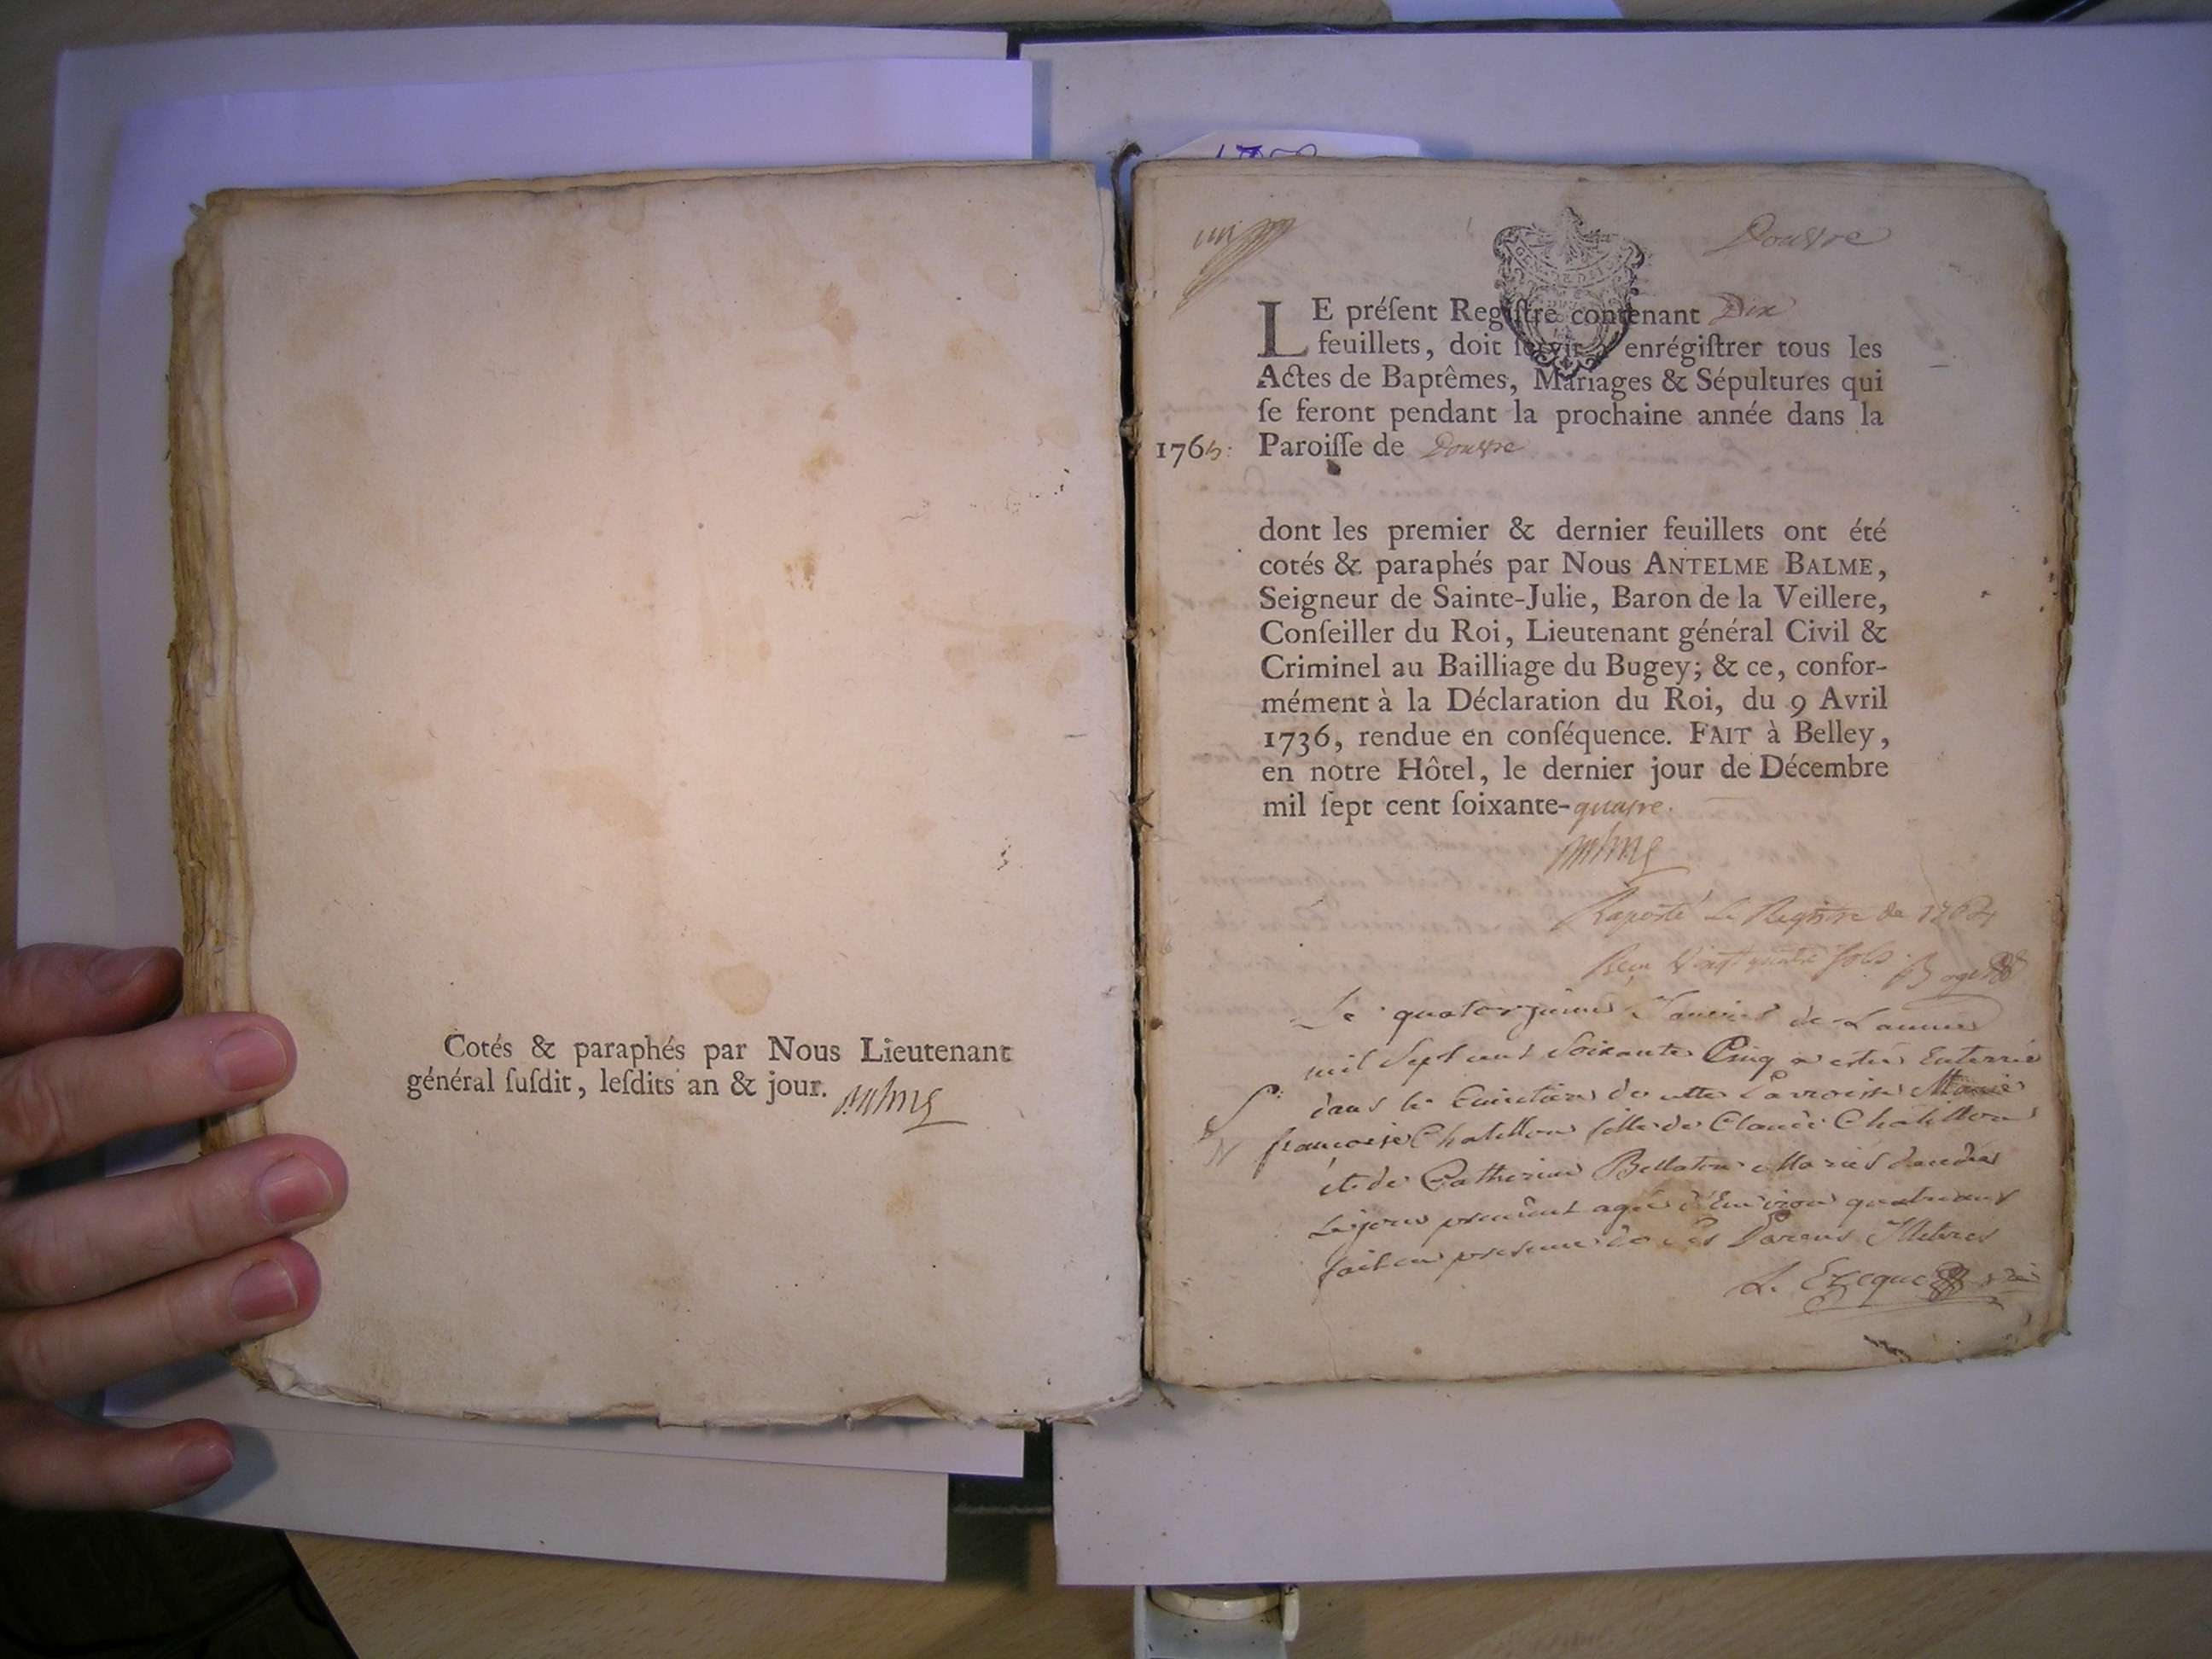 Cotés & paraphés par Nous Lieutenant
général ſuſdit, leſdits an & jour.
Douvre
LE préſent Regiſtre contenant Dix
feuillets, doit ſervir à enrégiſtrer tous les
Actes de Baptêmes, Mariages & Sépultures qui
ſe feront pendant la prochaine année dans la
1765: Paroiſſe de Douvre
dont les premier & dernier feuillets ont été
cotés & paraphés par Nous ANTELME BALME,
Seigneur de Sainte-Julie, Baron de la Veillere,
Conſeiller du Roi, Lieutenant général Civil &
Criminel au Bailliage du Bugey; & ce, confor-
mément à la Déclaration du Roi, du 9 Avril
1736, rendue en conſéquence. FAIT à Belley,
en notre Hôtel, le dernier jour de Décembre
mil ſept cent ſoixante-quatre.
Raporté le Registre de 1764
Reçu Vingt quatre sols
Le quatorzieme Janvier de Lannee
mil Sept cent Soixante Cinq a estée Enterrée
dans le Cimetiere de cette Parroisse Marie
francoise Chatillon fille de Claude Chatillon
et de Catherine Mariés
Le jour agée d'Environ quatre ans
fait en presence de Ses Parens Illetrés